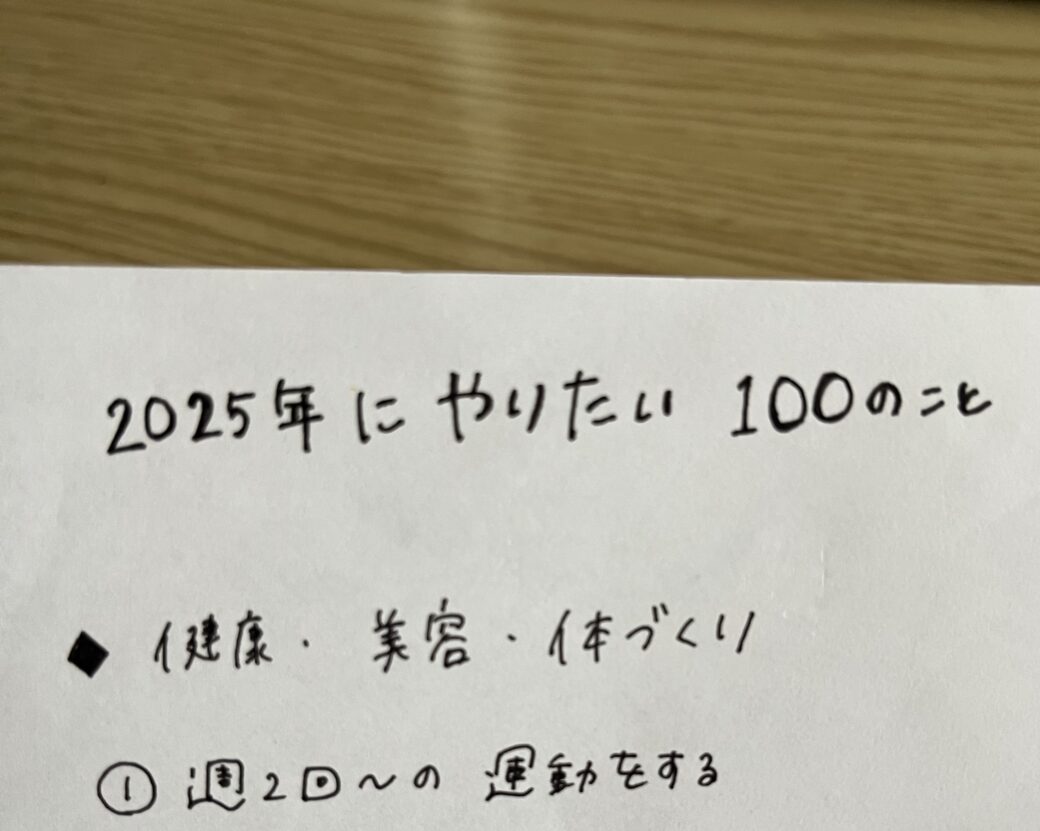 2025年にやりたい 100のこと
◆ 健康・美容・体づくり
① 週2回〜の運動をする